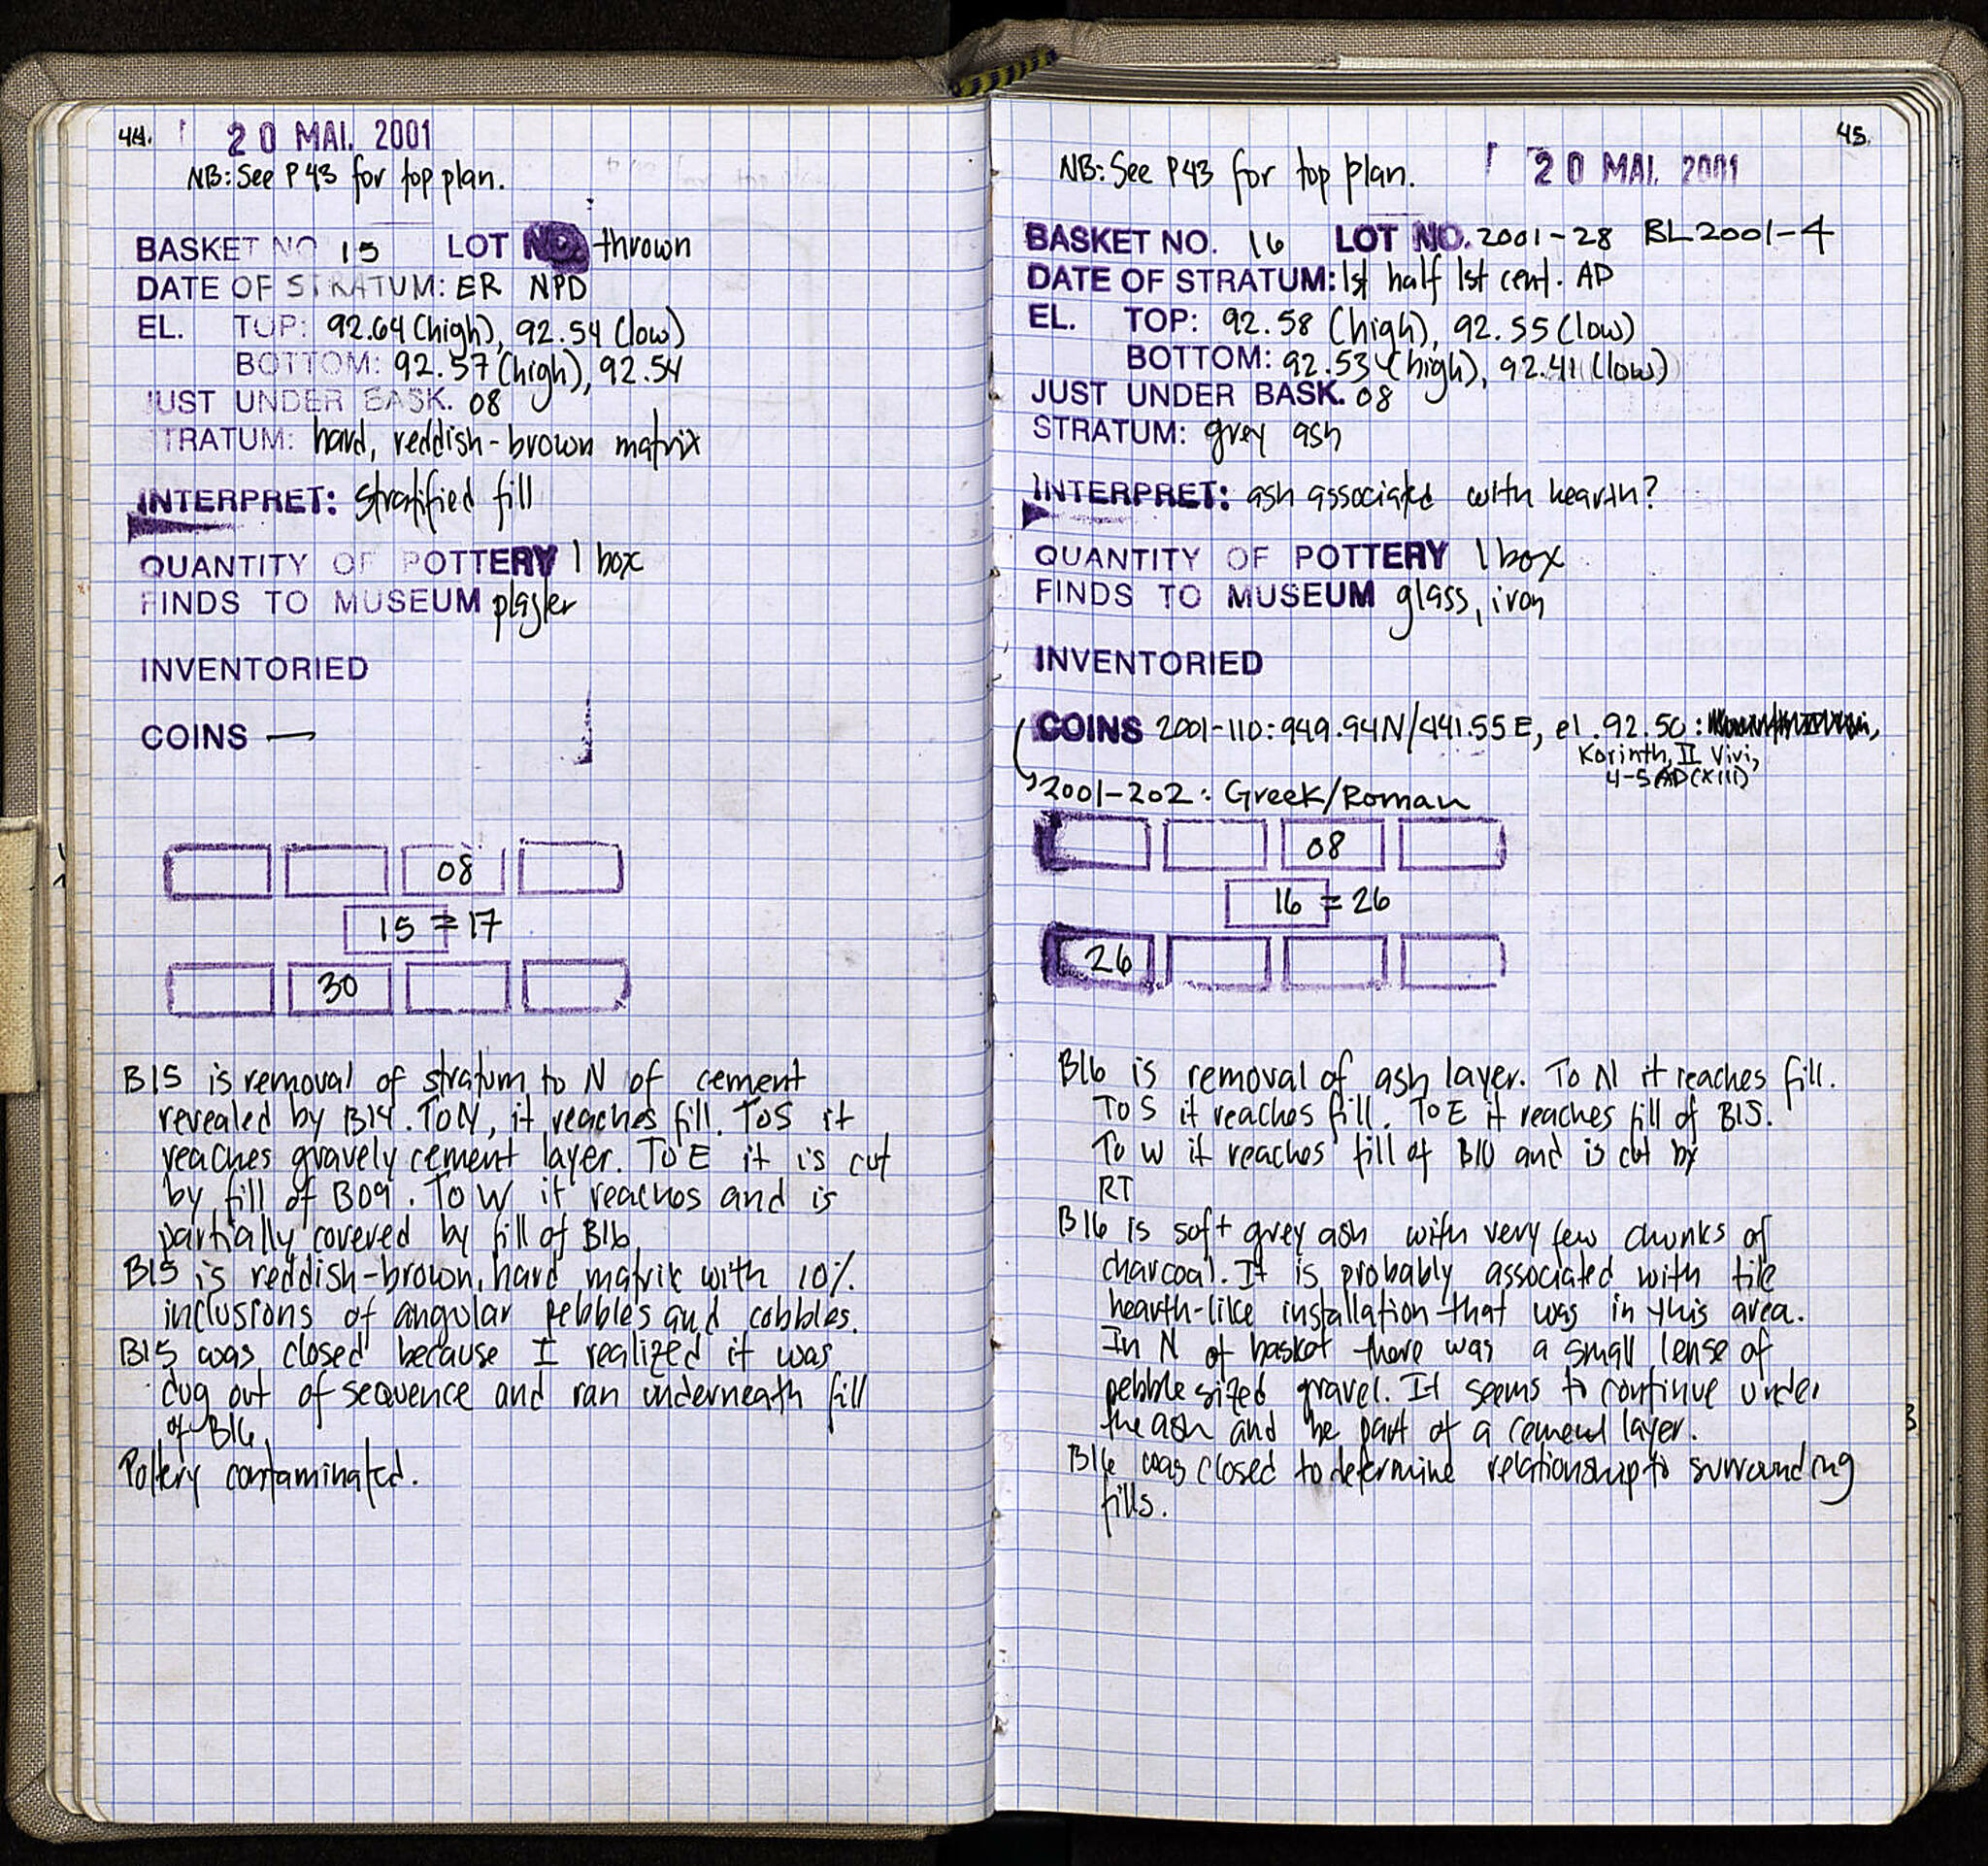 44.
20 MAI. 2001
NB: See P43 for top plan.
BASKET NO 15 LOT NO. thrown
DATE OF STRATUM: ER NPD
EL. TOP: 92.64 (high), 92.54 (low)
BOTTOM: 92.57 (high), 92.54
JUST UNDER BASK. 08
STRATUM: hard, reddish-brown matrix
INTERPRET: stratified fill
QUANTITY OF POTTERY 1 box
FINDS TO MUSEUM plaster
INVENTORIED
COINS —
08
15 = 17
30
B15 is removal of stratum to N of cement
revealed by B14. To N, it reaches fill. To S it
reaches gravely cement layer. To E it is cut
by fill of B09. To W it reaches and is
partially covered by fill of B16.
B15 is reddish-brown, hard matrix with 10%
inclusions of angular pebbles and cobbles.
B15 was closed because I realized it was
dug out of sequence and ran underneath fill
of B16.
Pottery contaminated.
45.
NB: See P43 for top plan. 20 MAI. 2001
BASKET NO. 16 LOT NO. 2001-28 BL2001-4
DATE OF STRATUM: 1st half 1st cent. AD
EL. TOP: 92.58 (high), 92.55 (low)
BOTTOM: 92.53 (high), 92.41 (low)
JUST UNDER BASK. 08
STRATUM: grey ash
INTERPRET: ash associated with hearth?
QUANTITY OF POTTERY 1 box
FINDS TO MUSEUM glass, iron
INVENTORIED
COINS 2001-110: 949.94N/441.55E, el. 92.50:
Korinth, II Viri,
4-5 AD (XIII)
2001-202: Greek/Roman
08
16 = 26
26
B16 is removal of ash layer. To N it reaches fill.
To S it reaches fill. To E it reaches fill of B15.
To W it reaches fill of B10 and is cut by
RT
B16 is soft grey ash with very few chunks of
charcoal. It is probably associated with tile
hearth-like installation that was in this area.
In N of basket there was a small lense of
pebble sized gravel. It seems to continue under
the ash and be part of a cement layer.
B16 was closed to determine relationship to surrounding
fills.